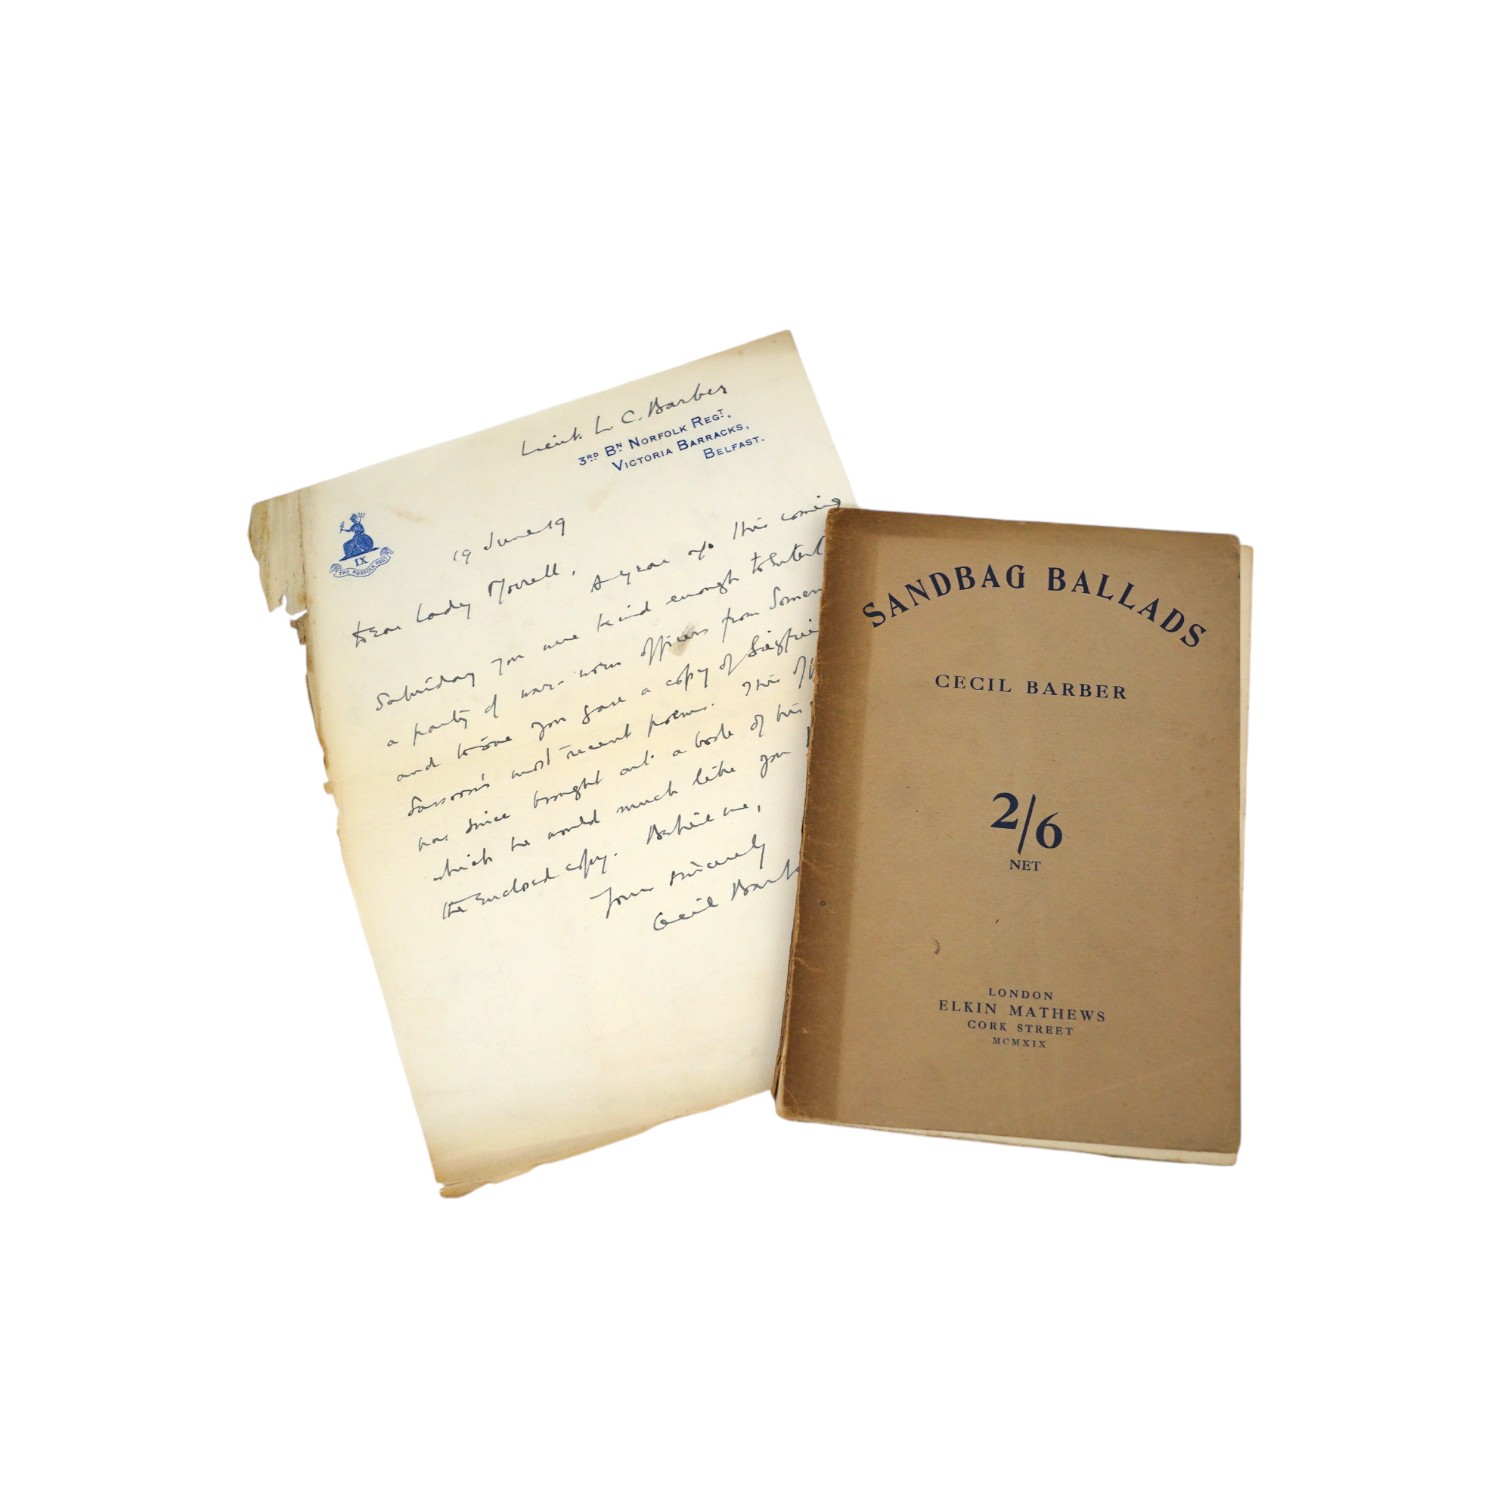 Lieut. L. C. Barber
3RD BN NORFOLK REGT,
VICTORIA BARRACKS,
BELFAST.
IX
THE NORFOLK REGT
19 June 19
Dear Lady Morrell,
A year ago this coming
Saturday you were kind enough to
a party of war-worn officers from
and to one you gave a copy of
Sassoon's most recent poems. This
has since brought out a book of his
which he would much like you
the enclosed copy. Believe me,
Yours sincerely
Cecil
SANDBAG BALLADS
CECIL BARBER
2/6
NET
LONDON
ELKIN MATHEWS
CORK STREET
MCMXIX